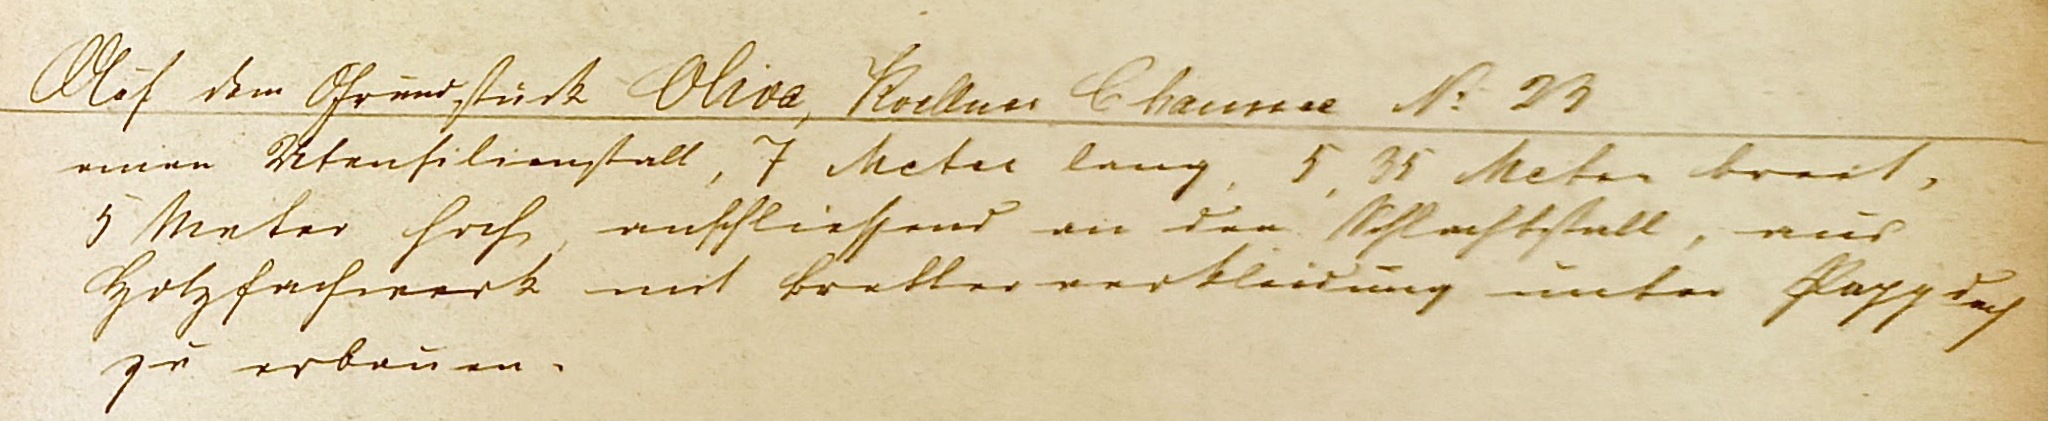 Auf dem Grundstück Oliva, Koellner Chaussee No 23
einen Utensilienstall, 7 Meter lang, 5,35 Meter breit,
5 Meter hoch, anschliessend an den Schlachtstall, aus
Holzfachwerk mit Bretterverkleidung unter Pappdach
zu erbauen.